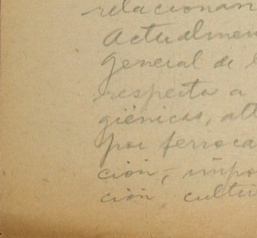 relacionan
Actualmen
general de l
respecto a
giénicas, alt
por ferroca
ción, impo
ción, cultu